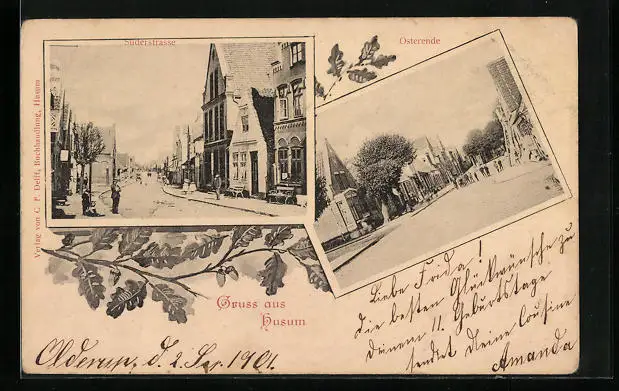 Süderstrasse
Osterende
Verlag von C. P. Delff, Buchhandlung, Husum
Gruss aus
Husum
Liebe Frida!
die besten Glückwünsche zu
deinem 11. Geburtstage
sendet deine Cousine
Amanda
Olderup, d. 2 Sep. 1901.